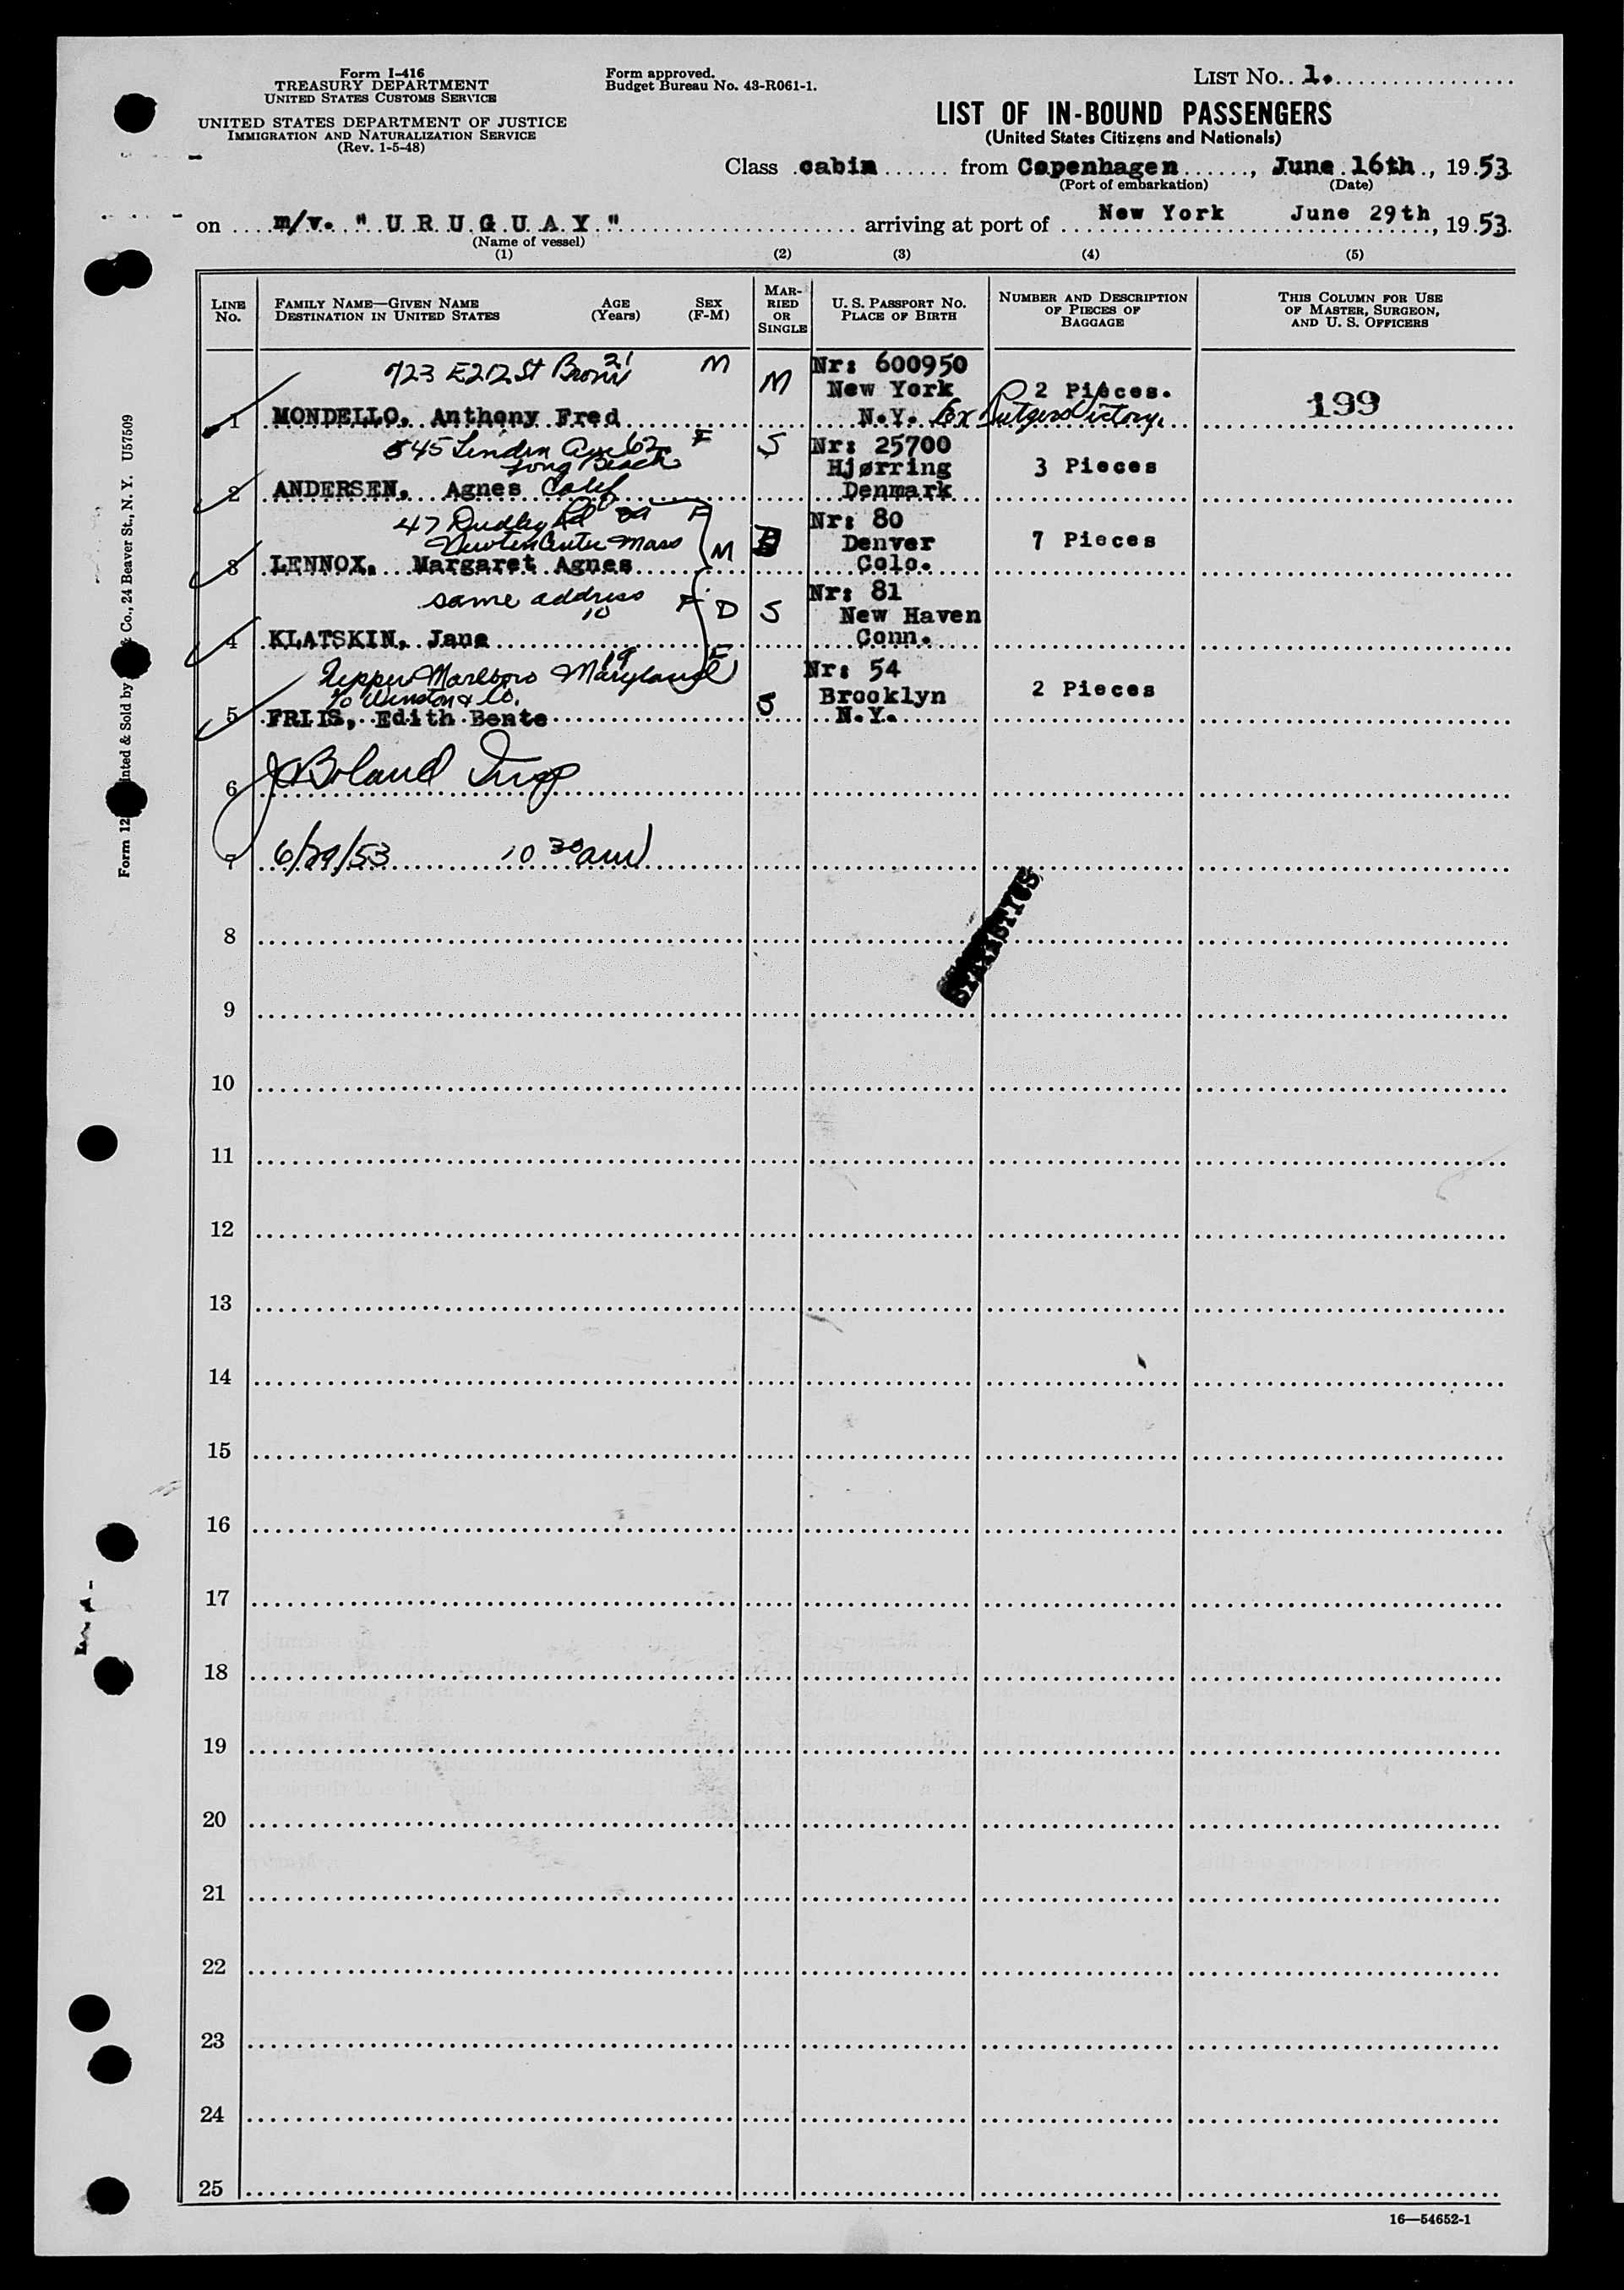 Form I-416
TREASURY DEPARTMENT
UNITED STATES CUSTOMS SERVICE
UNITED STATES DEPARTMENT OF JUSTICE
IMMIGRATION AND NATURALIZATION SERVICE
(Rev. 1-5-48)
Form approved.
Budget Bureau No. 43-R061-1.
LIST NO. 1.
LIST OF IN-BOUND PASSENGERS
(United States Citizens and Nationals)
Class cabin from Copenhagen, June 16th, 1953.
(Port of embarkation) (Date)
on m/v. "URUGUAY" arriving at port of New York June 29th, 1953.
(Name of vessel)
(1) (2) (3) (4) (5)
LINE NO.
FAMILY NAME—GIVEN NAME
DESTINATION IN UNITED STATES
AGE
(Years)
SEX
(F-M)
MARRIED OR SINGLE
U. S. PASSPORT NO.
PLACE OF BIRTH
NUMBER AND DESCRIPTION OF PIECES OF BAGGAGE
THIS COLUMN FOR USE OF MASTER, SURGEON, AND U. S. OFFICERS
723 E 212 St Bronx 21 M M Nr: 600950
New York 2 Pieces. 199
1 MONDELLO, Anthony Fred N.Y. Ex Rutgers Victory.
845 Linden Ave 62 F S Nr: 25700
Long Beach Hjørring 3 Pieces
2 ANDERSEN, Agnes Calif Denmark
47 Dudley Rd F Nr: 80
Newton Center Mass M Denver 7 Pieces
3 LENNOX, Margaret Agnes Colo.
same address F D S Nr: 81
10 New Haven
4 KLATSKIN, Jane Conn.
Upper Marlboro Maryland 19 F Nr: 54
% Winston & Co. S Brooklyn 2 Pieces
5 FRIIS, Edith Bente N.Y.
6 Boland Insp
7 6/29/53 10 30 am
8
9
10
11
12
13
14
15
16
17
18
19
20
21
22
23
24
25
16—54652-1
Form 12 Printed & Sold by & Co., 24 Beaver St., N. Y. U57509